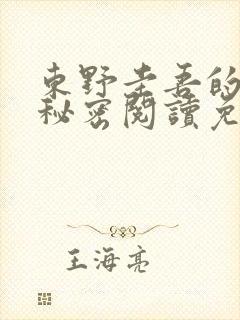 東野圭吾的
秘密閱讀免
王海亮